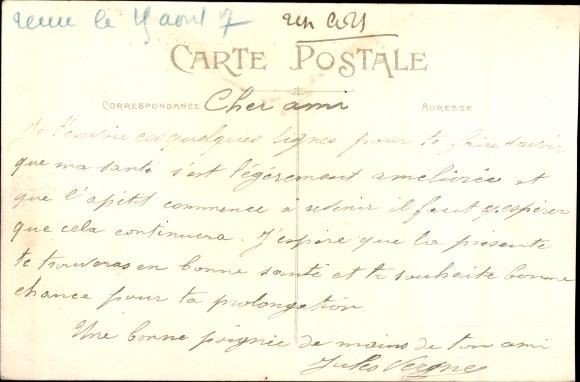 le 15 août 7
CARTE POSTALE
CORRESPONDANCE
ADRESSE
Cher ami
Je t'envoie ces quelques lignes pour te faire savoir
que ma santé s'est légèrement améliorée et
que l'apétit commence à revenir il faut espérer
que cela continuera. J'espère que la présente
te trouveras en bonne santé et te souhaite bonne
chance pour ta prolongation
Une bonne poignée de mains de ton ami
Jules Vergne